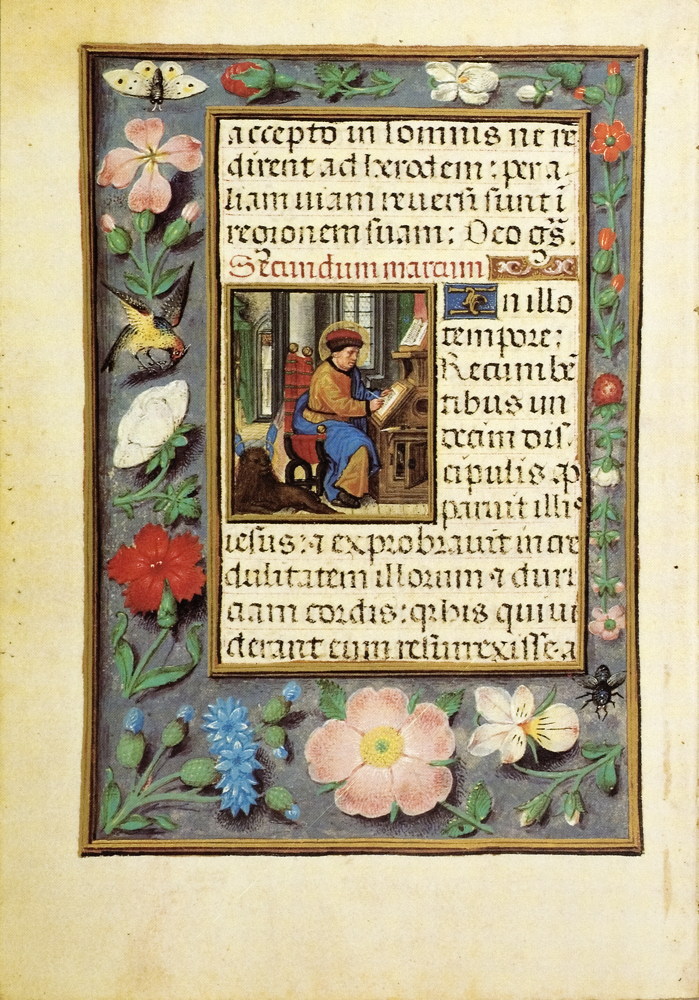 accepto in somnis ne re
dirent ad herodem: per a-
liam uiam reuersi sunt i
regionem suam: Deo gs.
Secundum marcum
In illo
tempore:
Recumbe
tibus un
decim dis
cipulis ap
paruit illis
iesus: et exprobrauit incre
dulitatem illorum et duri
ciam cordis: q̄ his qui ui
derant eum resurrexisse a